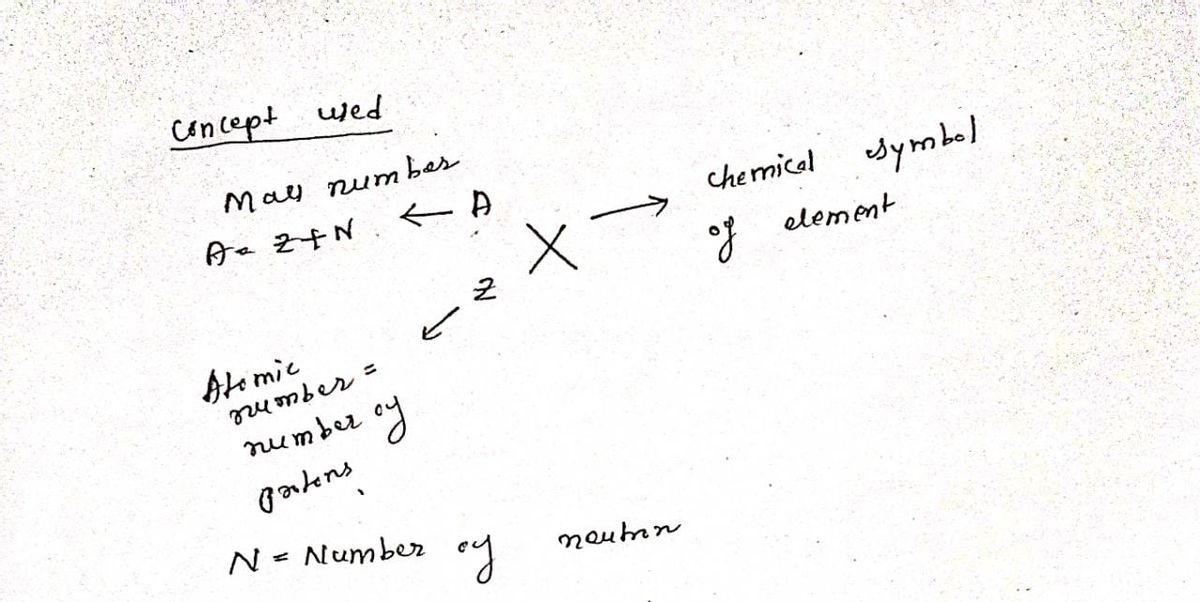 Concept used
Mass number
A = Z + N ← A
X → chemical symbol
of element
Z
Atomic
number =
number of
protons
N = Number of neutron